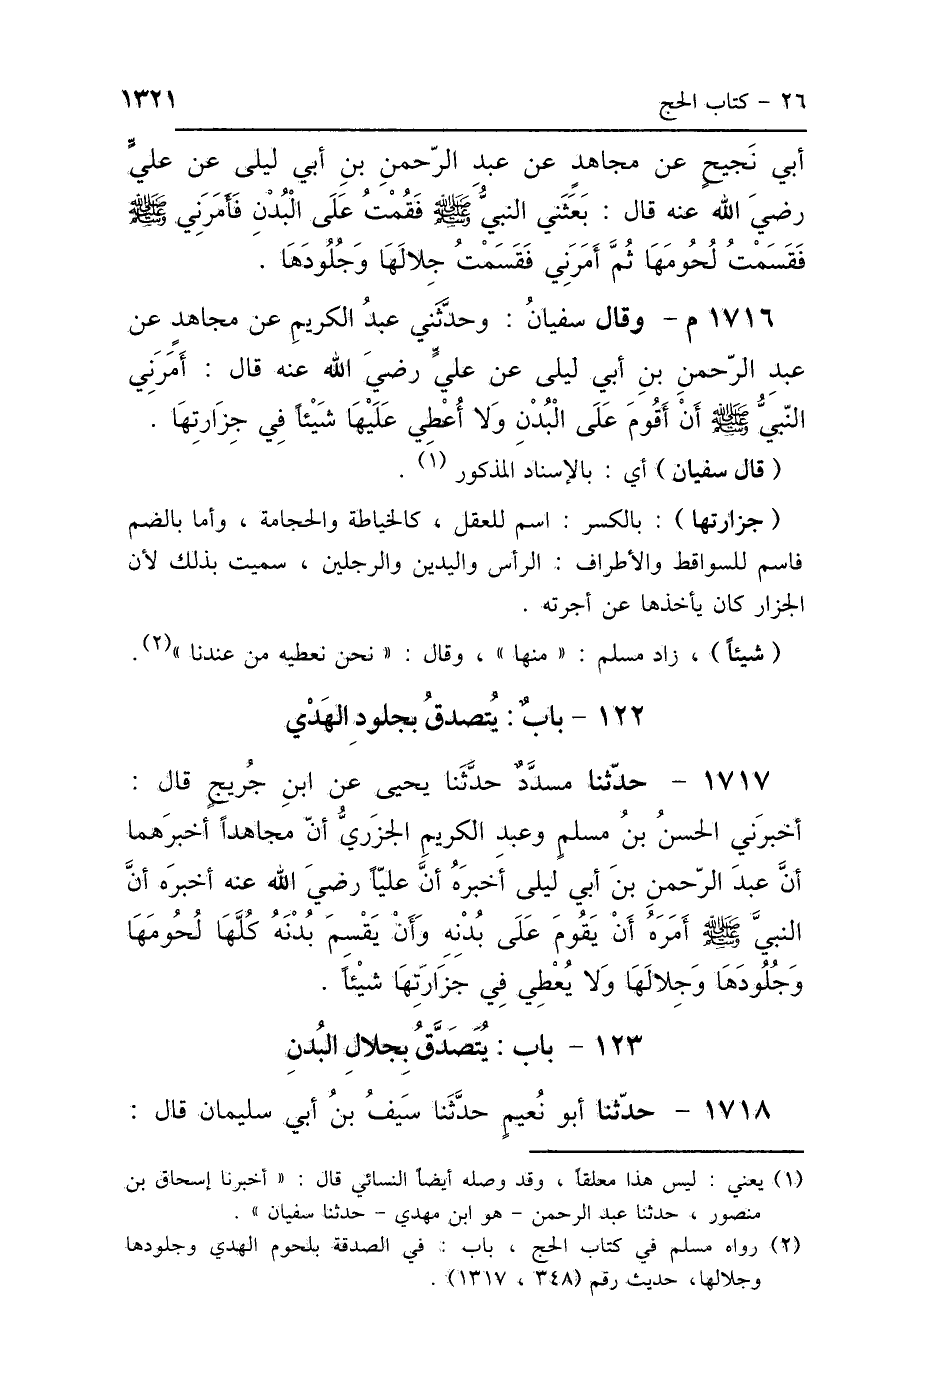 ٢٦ - كتاب الحج ١٣٢١
أبي نَجيحٍ عن مجاهدٍ عن عبدِ الرّحمنِ بنِ أبي ليلى عن عليٍّ
رضيَ الله عنه قال : بَعَثَني النبيُّ ﷺ فَقُمْتُ عَلَى الْبُدْنِ فَأَمَرَنِي ﷺ
فَقَسَمْتُ لُحُومَهَا ثُمَّ أَمَرَنِي فَقَسَمْتُ جِلالَهَا وَجُلُودَهَا .
١٧١٦ م - وقال سفيانُ : وحدَّثَني عبدُ الكريمِ عن مجاهدٍ عن
عبدِ الرّحمنِ بنِ أبي ليلى عن عليٍّ رضيَ الله عنه قال : أَمَرَنِي
النّبيُّ ﷺ أَنْ أَقُومَ عَلَى الْبُدْنِ وَلا أُعْطِي عَلَيْهَا شَيْئاً فِي جِزَارَتِهَا .
( قال سفيان ) أي : بالإسناد المذكور (١) .
( جزارتها ) : بالكسر : اسم للعقل ، كالخياطة والحجامة ، وأما بالضم
فاسم للسواقط والأطراف : الرأس واليدين والرجلين ، سميت بذلك لأن
الجزار كان يأخذها عن أجرته .
( شيئاً ) ، زاد مسلم : « منها » ، وقال : « نحن نعطيه من عندنا »(٢).
١٢٢ - بابٌ : يُتصدقُ بجلودِ الهَدْي
١٧١٧ - حدّثنا مسدَّدٌ حدَّثَنا يحيى عن ابنِ جُريجٍ قال :
أخبرَني الحسنُ بنُ مسلمٍ وعبدِ الكريمِ الجزَريُّ أنّ مجاهداً أخبرَهما
أنَّ عبدَ الرّحمنِ بنَ أبي ليلى أخبرَهُ أنَّ عليّاً رضيَ الله عنه أخبرَه أنَّ
النبيَّ ﷺ أَمَرَهُ أَنْ يَقُومَ عَلَى بُدْنِهِ وَأَنْ يَقْسِمَ بُدْنَهُ كُلَّهَا لُحُومَهَا
وَجُلُودَهَا وَجِلالَهَا وَلا يُعْطِي فِي جِزَارَتِهَا شَيْئاً .
١٢٣ - باب : يُتَصَدَّقُ بِجلالِ البُدنِ
١٧١٨ - حدّثنا أبو نُعيمٍ حدَّثَنا سَيَفُ بنُ أبي سليمان قال :
(١) يعني : ليس هذا معلقاً ، وقد وصله أيضاً النسائي قال : « أخبرنا إسحاق بن
منصور ، حدثنا عبد الرحمن - هو ابن مهدي - حدثنا سفيان » .
(٢) رواه مسلم في كتاب الحج ، باب : في الصدقة بلحوم الهدي وجلودها
وجلالها، حديث رقم (٣٤٨ ، ١٣١٧) .